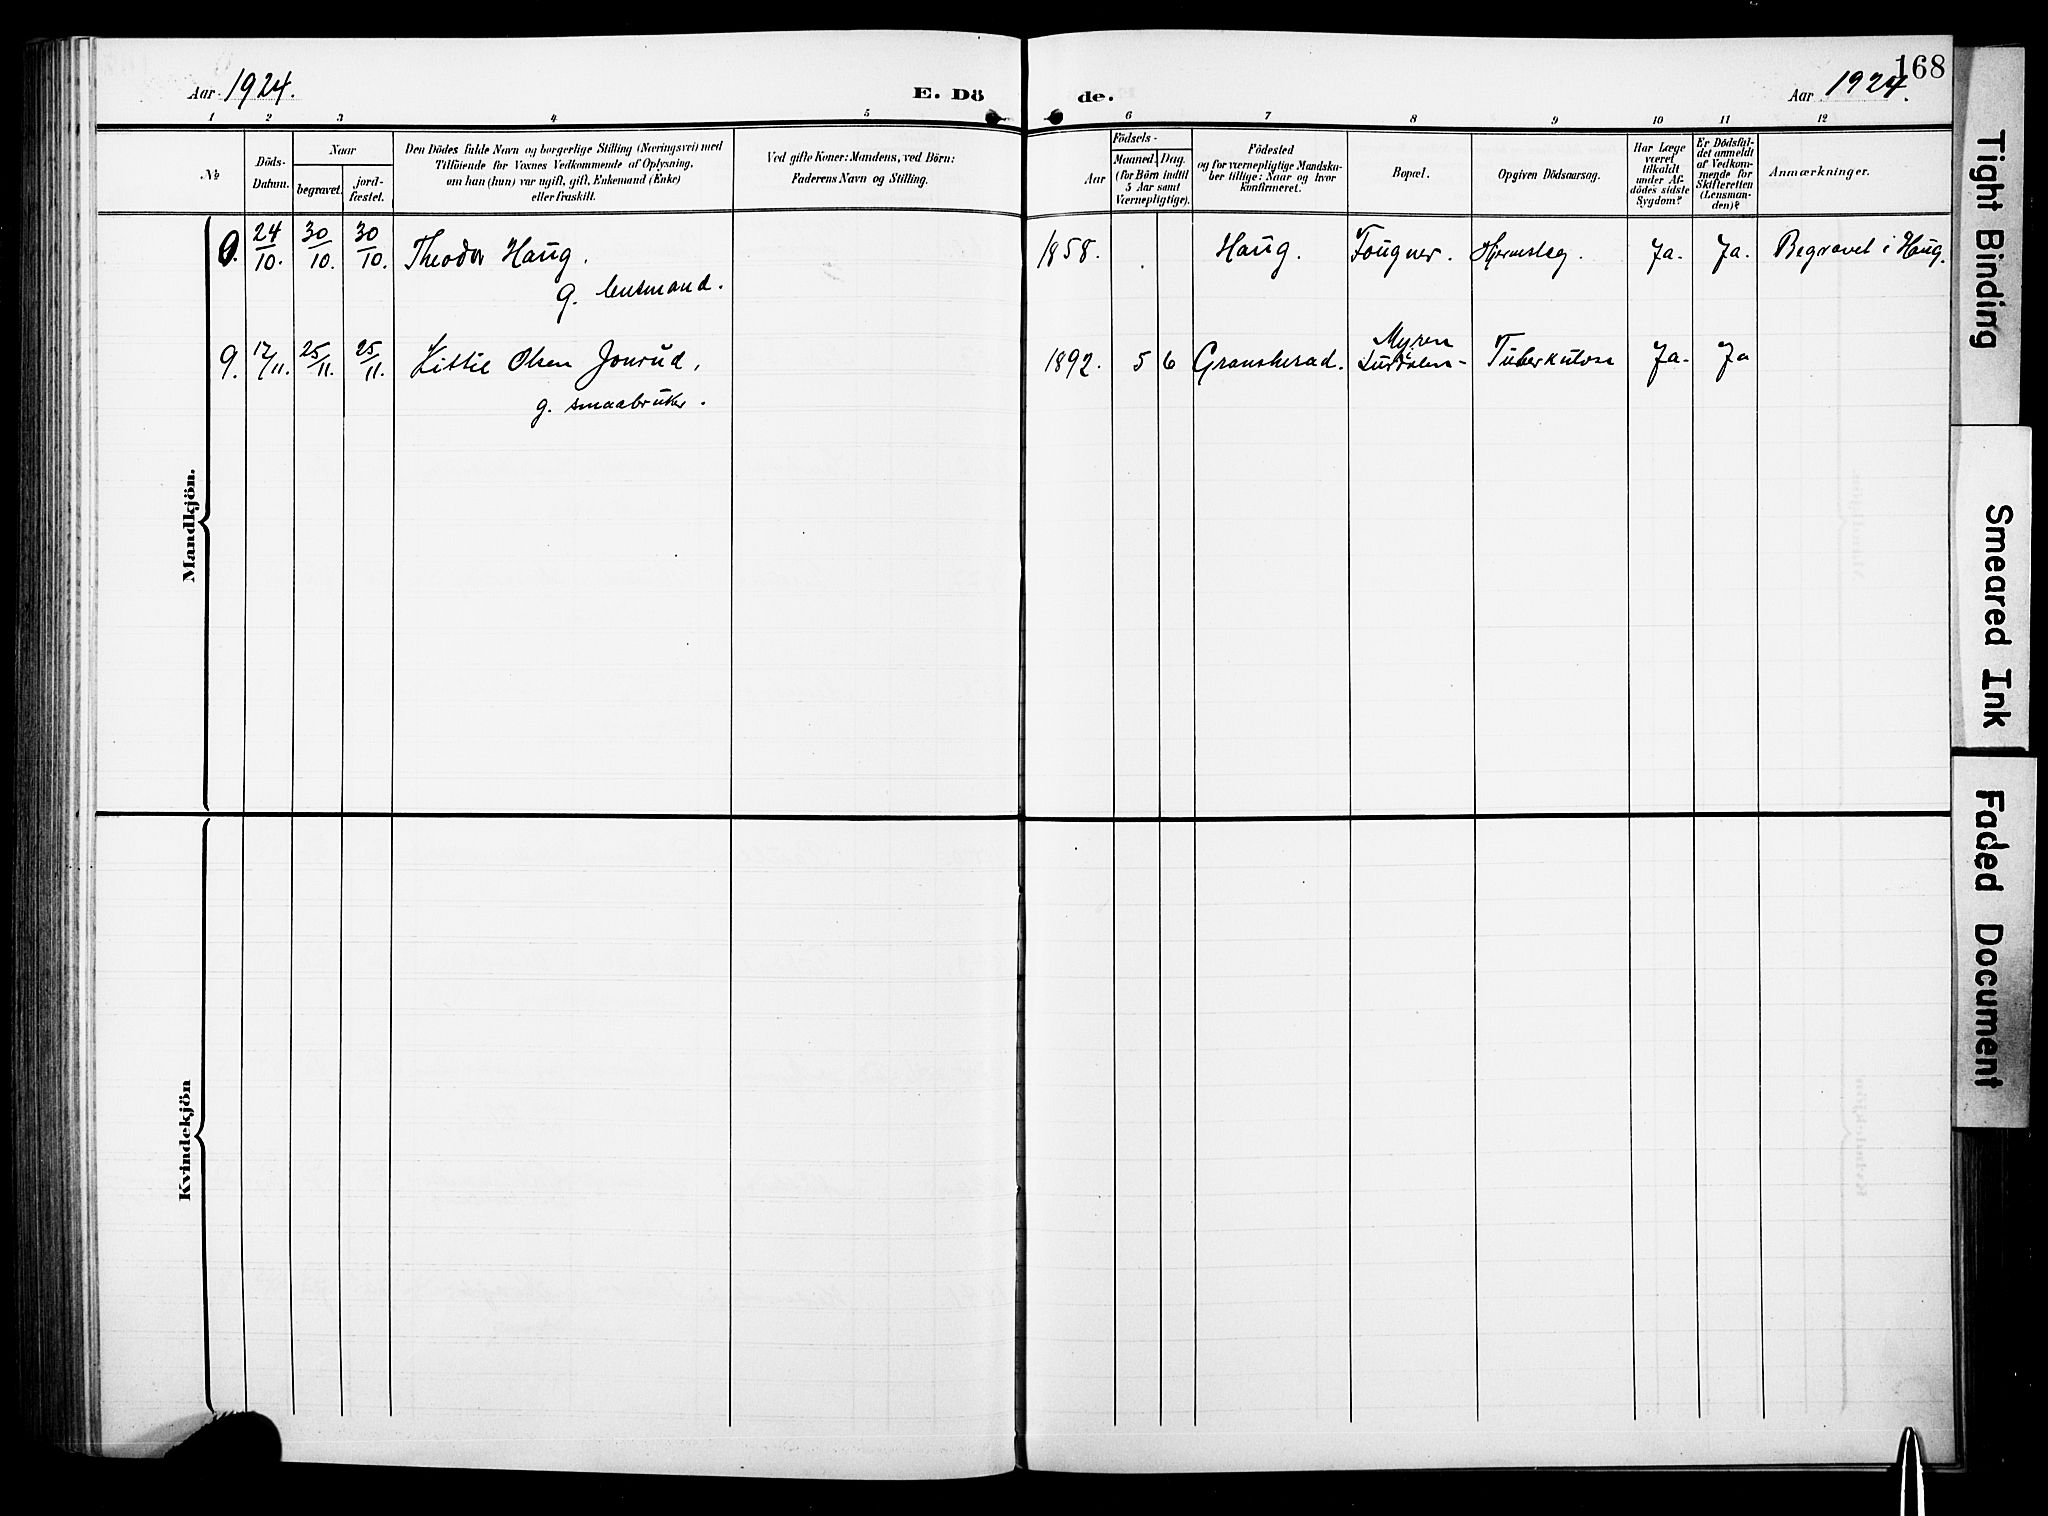 168
Aar 1924.
E. Dö
de.
Aar 1924.
1 2 3 4 5 6 7 8 9 10 11 12
№
Döds-
Datum.
Naar
begravet.
jord-
fæstet.
Den Dödes fulde Navn og borgerlige Stilling (Næringsvei) med
Tilföiende for Voxnes Vedkommende af Oplysning,
om han (hun) var ugift, gift, Enkemand (Enke)
eller fraskilt.
Ved gifte Koner: Mandens, ved Börn:
Faderens Navn og Stilling.
Födsels-
Aar
Maaned. Dag.
(for Börn indtil
5 Aar samt
Værnepligtige).
Födested
og for værnepligtige Mandska-
ber tillige: Naar og hvor
konfirmeret.
Bopæl.
Opgiven Dödsaarsag.
Har Læge
været
tilkaldt
under Af-
dödes sidste
Sygdom?
Er Dödsfal-
det anmeldt
af Vedkom-
mende for
Skifteretten
(Lensman-
den)?
Anmærkninger.
Mandkjön.
24/10. 30/10. 30/10. Theodor Haug.
g. lensmand.
1858. Haug. Fougner. Hjerneslag. Ja. Ja. Begravet i Haug.
9. 17/11. 25/11. 25/11. Kittil Olsen Jonrud,
g. smaabruker.
1892. 5 6 Gransherad. Myren
Lurdalen- Tuberkulose Ja- Ja
Kvindekjön
Tight Binding
Smeared Ink
Faded Document